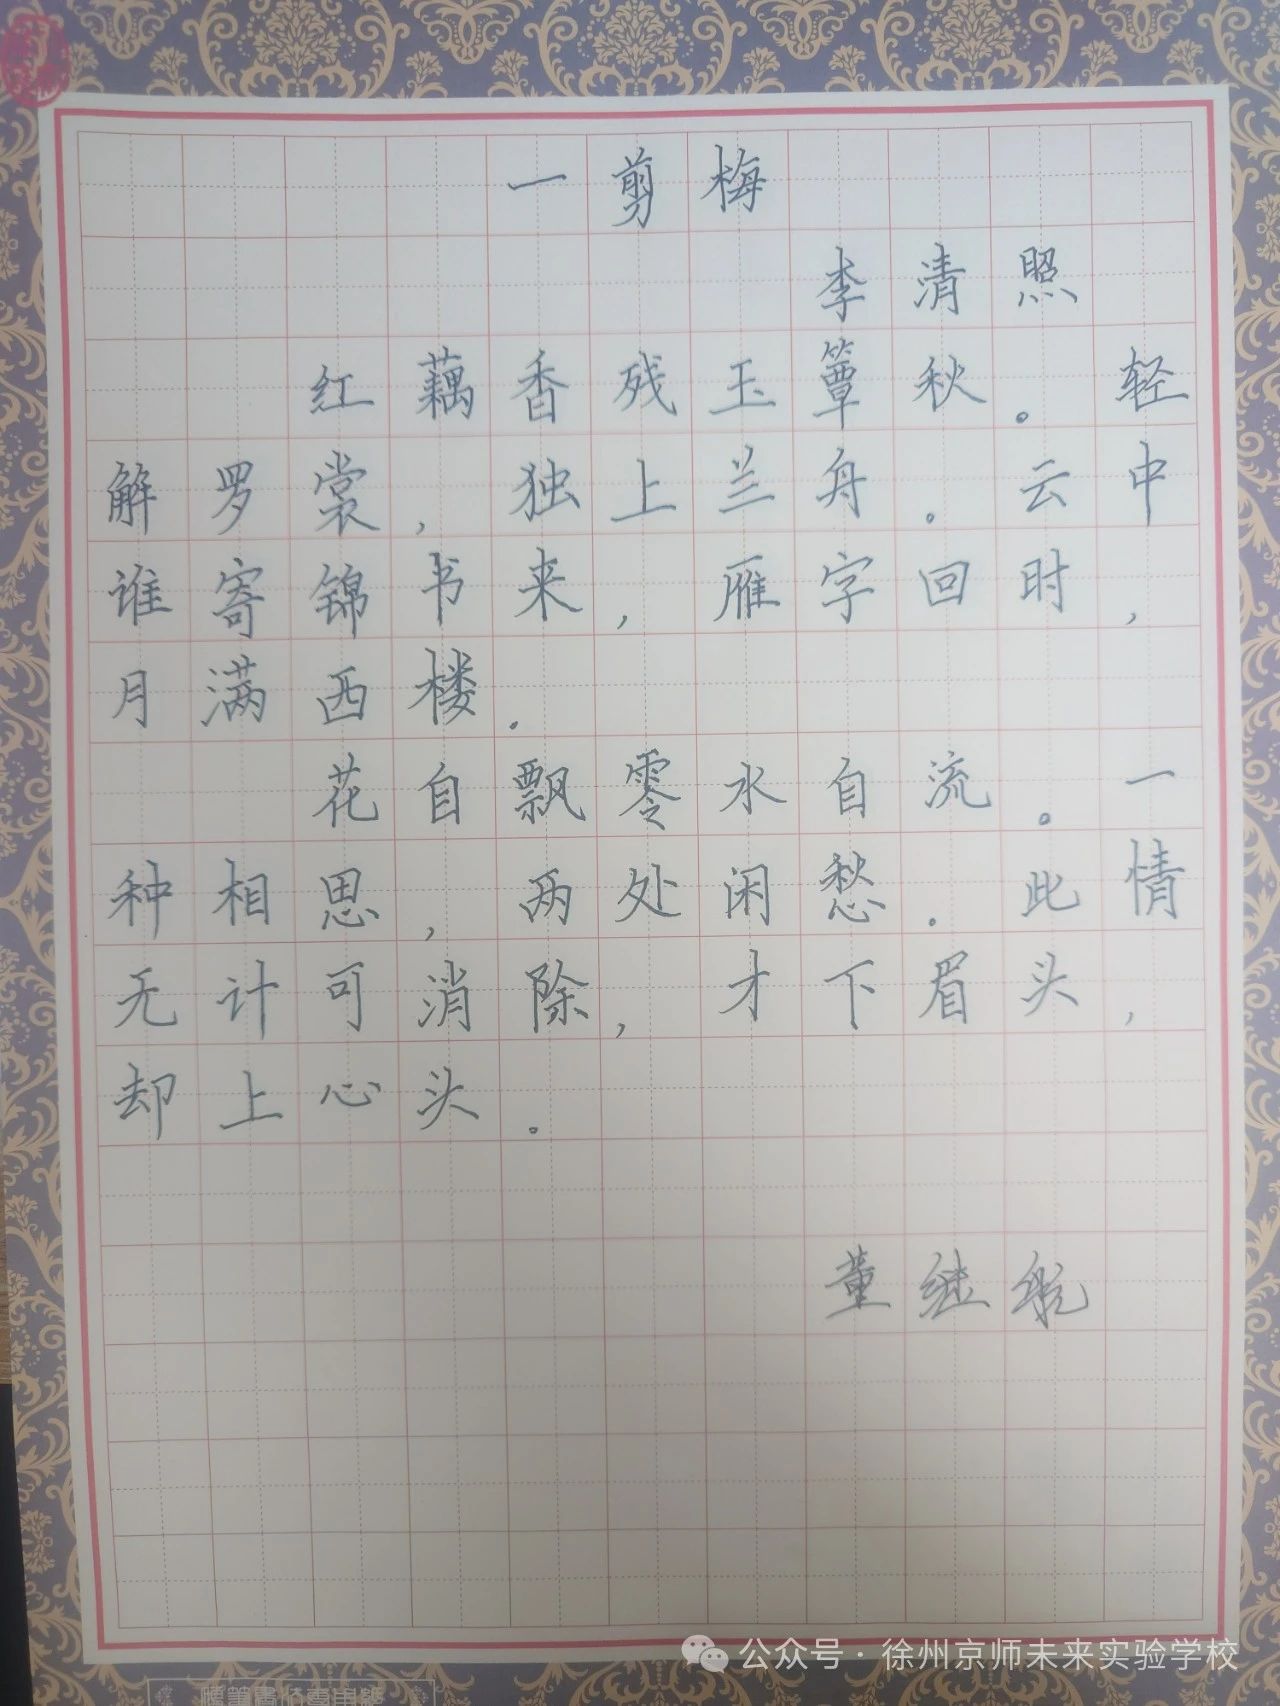 一剪梅
李清照
红藕香残玉簟秋。轻
解罗裳,独上兰舟。云中
谁寄锦书来,雁字回时,
月满西楼。
花自飘零水自流。一
种相思,两处闲愁。此情
无计可消除,才下眉头,
却上心头。
董继
公众号·徐州京师未来实验学校